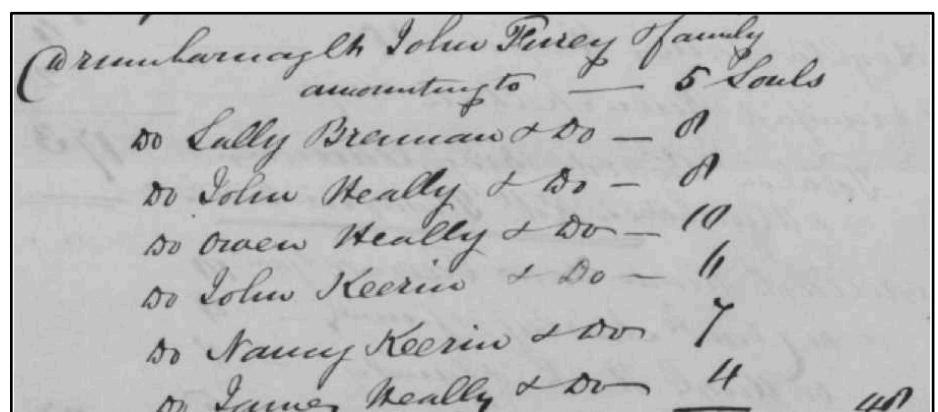 John Furey & family
amounting to — 5 Souls
Do Sally Brennan & Do — 8
Do John Heally & Do — 8
Do Owen Heally & Do — 10
Do John Keerin & Do — 6
Do Nancy Keerin & Do 7
Do James Heally & Do 4
48